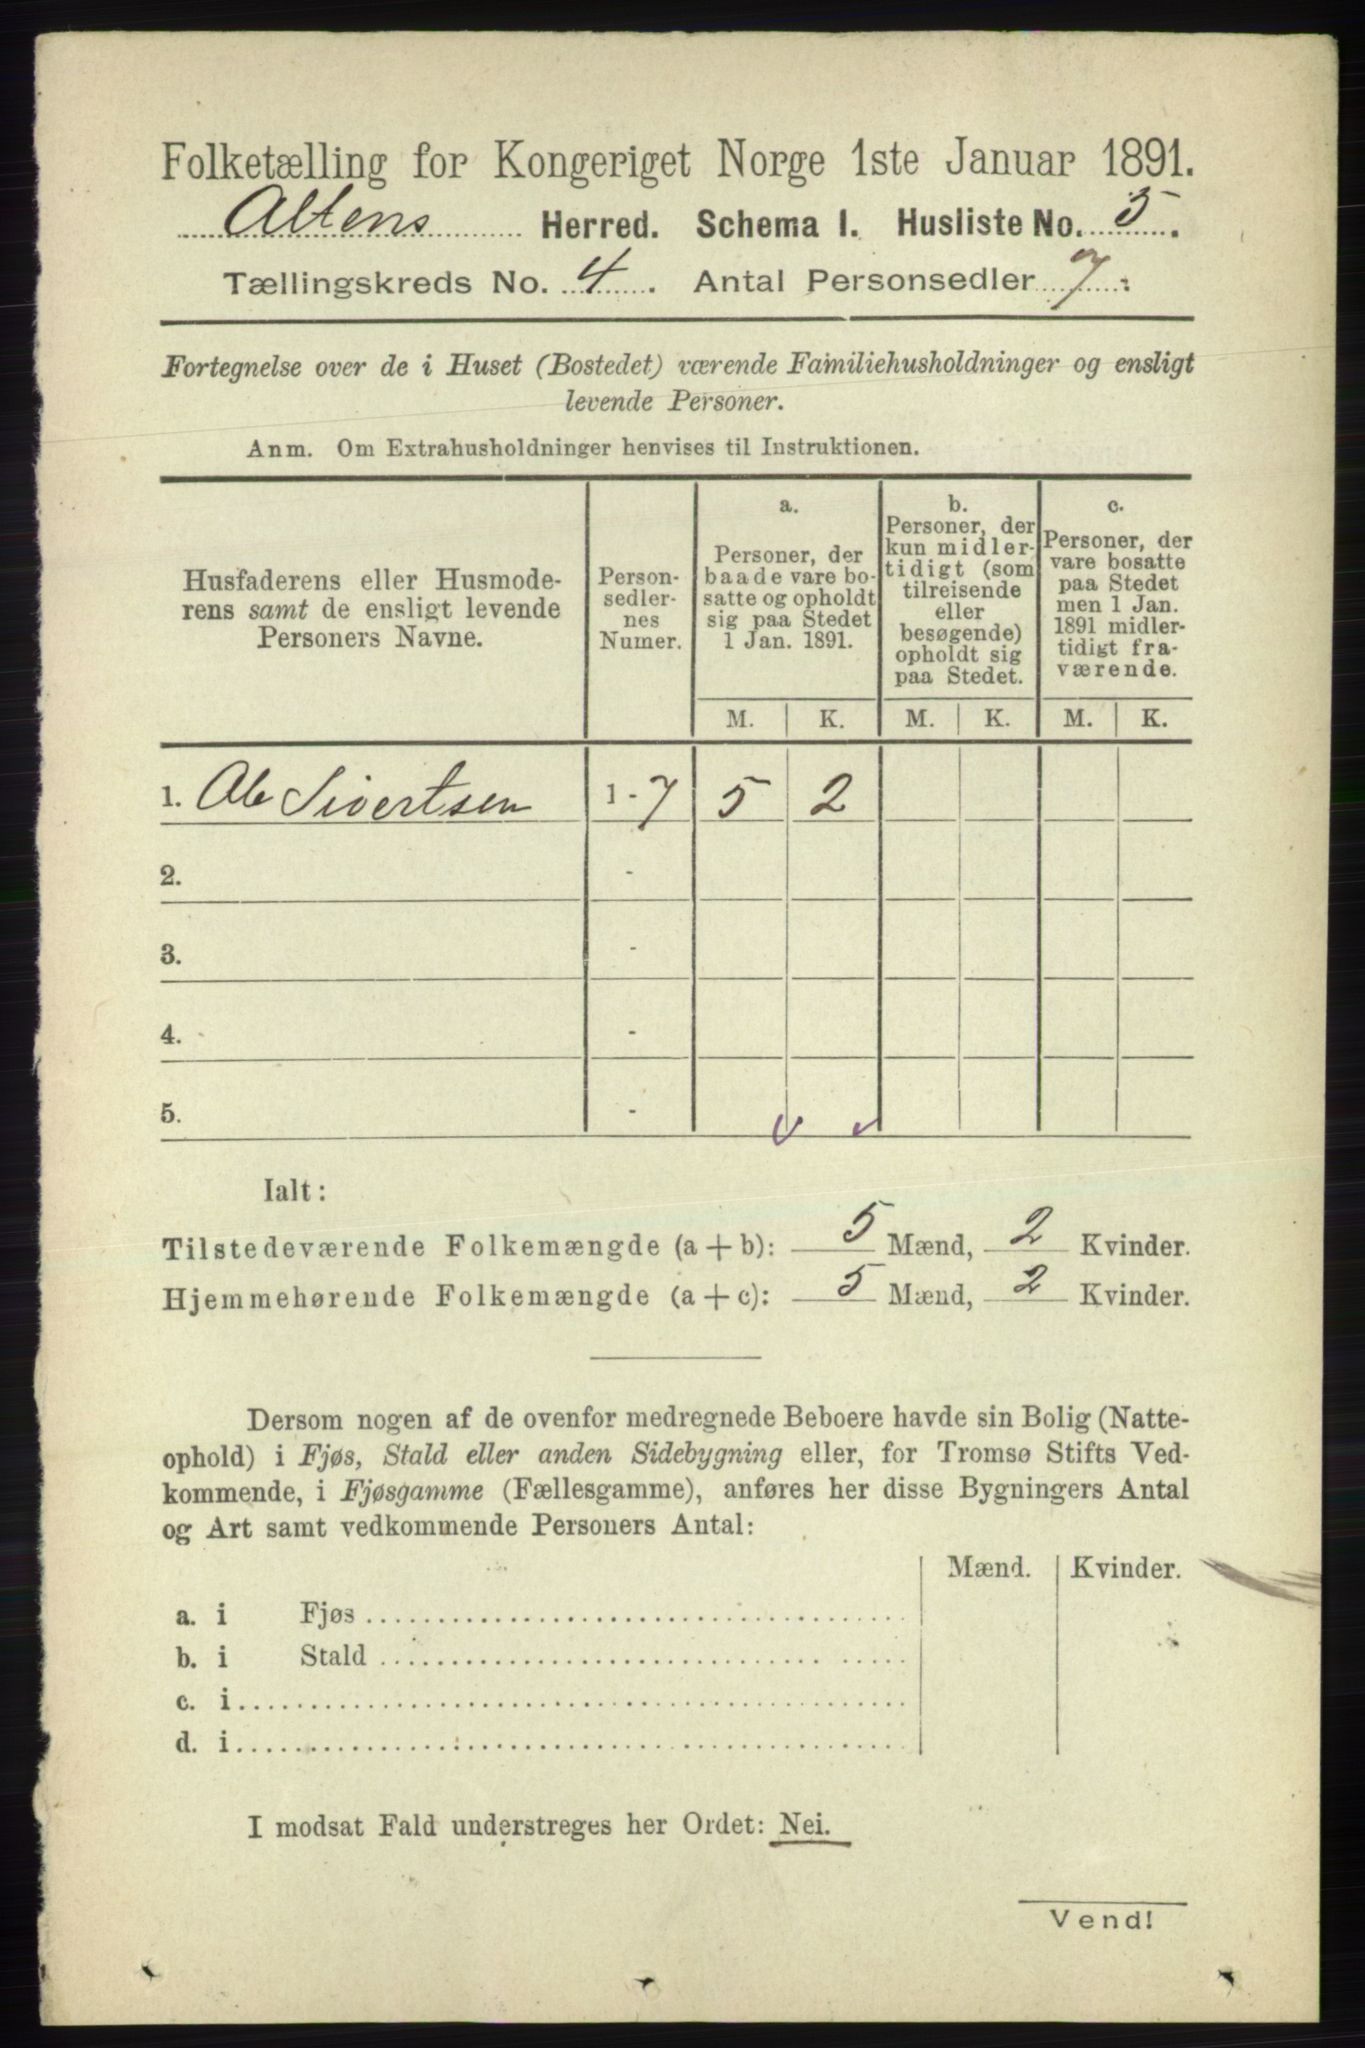 Folketælling for Kongeriget Norge 1ste Januar 1891.
Altens Herred. Schema I. Husliste No. 5.
Tællingskreds No. 4. Antal Personsedler 7.
Fortegnelse over de i Huset (Bostedet) værende Familiehusholdninger og ensligt
levende Personer.
Anm. Om Extrahusholdninger henvises til Instruktionen.
Husfaderens eller Husmode-
rens samt de ensligt levende
Personers Navne.
Person-
sedler-
nes
Numer.
a.
Personer, der
baade vare bo-
satte og opholdt
sig paa Stedet
1 Jan. 1891.
b.
Personer, der
kun midler-
tidigt (som
tilreisende
eller
besøgende)
opholdt sig
paa Stedet.
c.
Personer, der
vare bosatte
paa Stedet
men 1 Jan.
1891 midler-
tidigt fra-
værende.
M. K. M. K. M. K.
1. Ole Sivertsen 1-7 5 2
2. -
3. -
4. -
5. -
Ialt:
Tilstedeværende Folkemængde (a+b): 5 Mænd, 2 Kvinder.
Hjemmehørende Folkemængde (a+c): 5 Mænd, 2 Kvinder.
Dersom nogen af de ovenfor medregnede Beboere havde sin Bolig (Natte-
ophold) i Fjøs, Stald eller anden Sidebygning eller, for Tromsø Stifts Ved-
kommende, i Fjøsgamme (Fællesgamme), anføres her disse Bygningers Antal
og Art samt vedkommende Personers Antal:
Mænd. Kvinder.
a. i Fjøs
b. i Stald
c. i
d. i
I modsat Fald understreges her Ordet: Nei.
Vend!